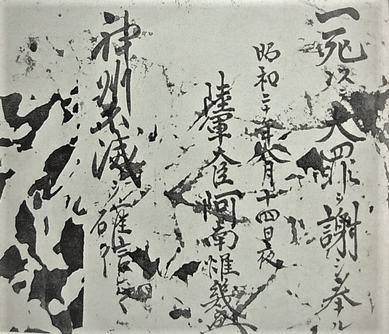 一死以テ大罪ヲ謝シ奉ル
昭和二十年八月十四日夜
陸軍大臣阿南惟幾
神州不滅ヲ確信シツゝ